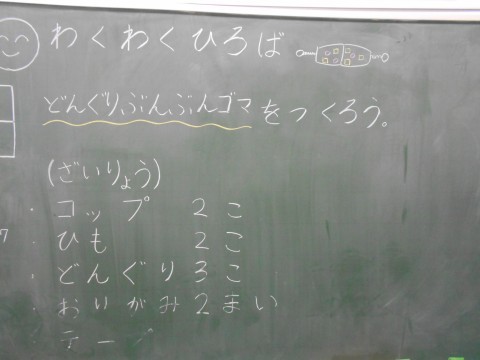 わくわくひろば
どんぐりぶんぶんゴマをつくろう。
(ざいりょう)
・コップ 2こ
・ひも 2こ
・どんぐり3こ
・おりがみ2まい